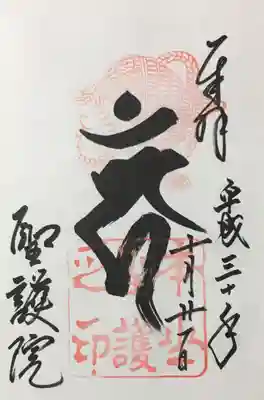 奉拝
平成三十年
十月廿一日
聖護院